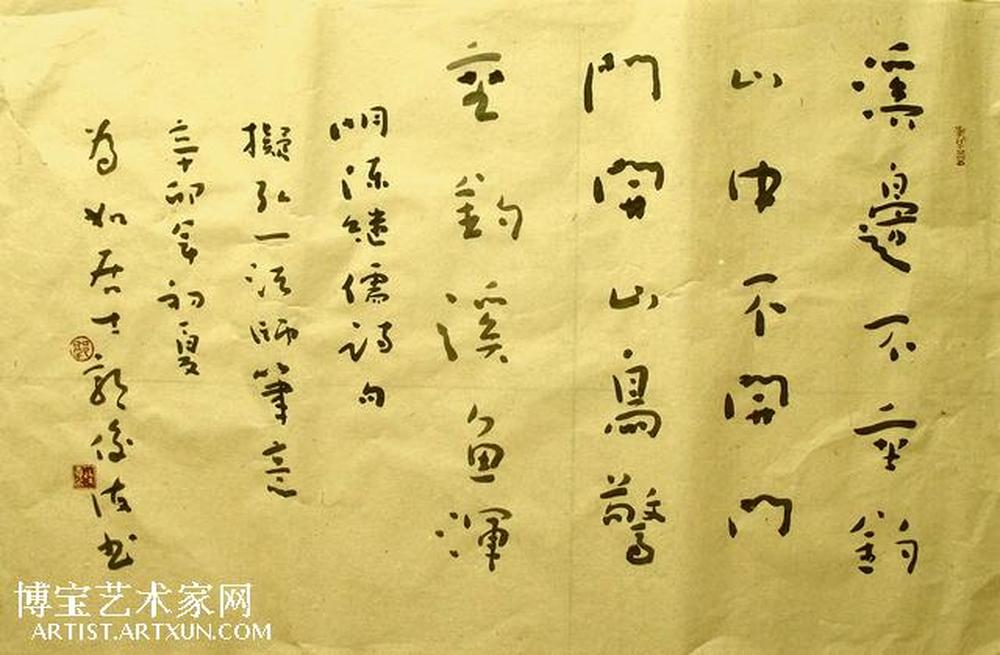 溪邊不垂釣
山中不開門
門開山鳥驚
垂釣溪魚渾
明陳繼儒詩句
擬弘一法師筆意
辛卯年初夏
為如居士 書
博宝艺术家网
ARTIST.ARTXUN.COM